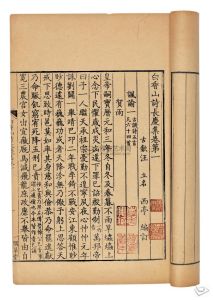 白香山詩長慶集卷第一
古歙汪立名西亭編訂
諷諭一 古調詩五言凡六十四首
賀雨
皇帝嗣寶曆元和三年冬自冬及春暮不雨旱爞爞上
心念下民懼歲成災凶遂下罪己詔殷勤告萬邦帝
曰予一人繼天承祖宗憂勤不遑寧夙夜心忡忡元年
誅劉闢一舉靖巴邛二年戮李錡不戰安江東顧惟眇
眇德遽有巍巍功或者天降沴無乃儆予躬上思答天
戒下思致時邕莫如率其身慈和與儉恭乃命罷進獻
乃命賑飢窮宥死降五刑責己
寬三農宮女出宣徽廄馬減飛龍庶政靡不舉皆出自